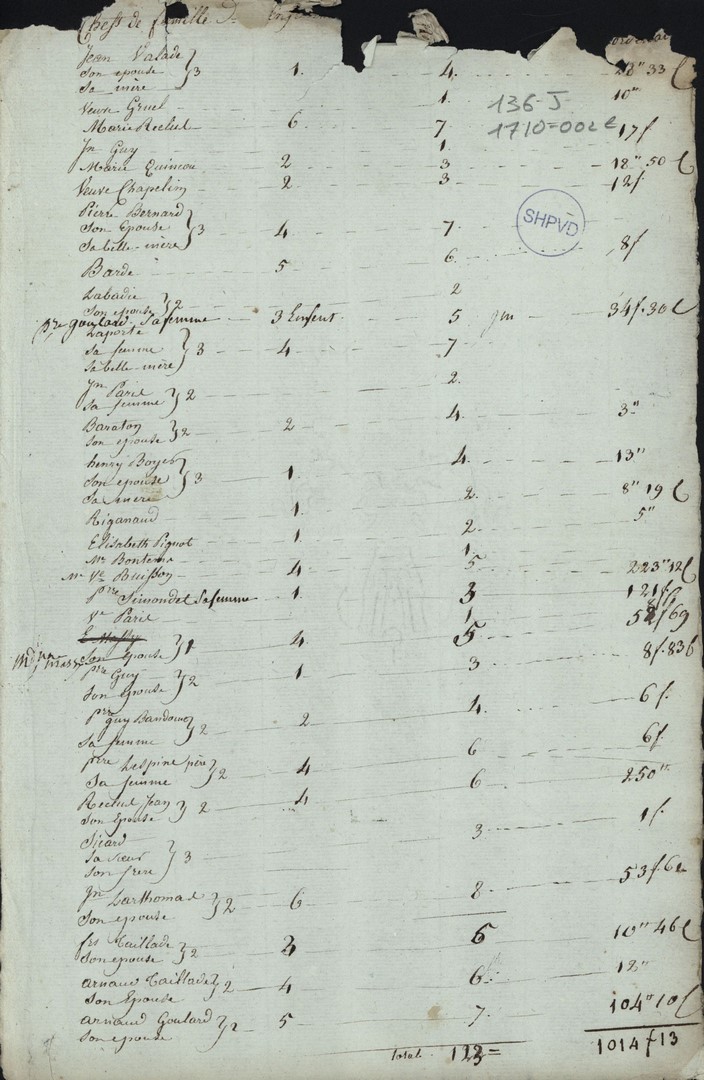 Chefs de famille
Jean Valade
Son epouse } 3 1. 4. 28" 33 c
Sa mère
Veuve Gruel 1. 10"
Marie Reclus 6 7 17f
Jn Guy 1.
Marie Quincou 2 3 18" 50 c
Veuve Chapelin 2 3 12f
Pierre Bernard
Son Epouse } 3 4 7
Sa belle-mère 8f
Barde 5 6
Labadie 2
Son epouse } 2
Pre goulard Sa femme 3 Enfent 5 34f.30c
Laporte
Sa femme } 3 4 7
Sa belle mère
Jn Paris
Sa femme } 2 2.
Baraton
Son epouse } 2 2 4. 3"
henry Boyer
Son epouse } 3 1. 4. 13"
Sa mère
Riganaud 1. 2. 8" 19 c
Elisabeth Piquot 1. 2 5"
Mr Bontems 1.
Mr Ve Buisson 4 5 223" 12c
Pre Simondet Sa femme 1. 3 121f
Ve Paris 1
Son Epouse } 4 5 52f69
Pre Guy
Son Epouse } 2 1. 3 8f.83c
Pre guy
Sa femme } 2 2 4. 6f
Pre Lespine père
Sa femme } 2 4 6 6f
Reclus Jean
Son Epouse } 2 4 6 250"
Sicard
Sa sœur } 3 3 1f
Son frere
Jn Larthomas
Son epouse } 2 6 8 53f
frs Taillade
Son epouse } 2 6 10" 46c
arnaud Taillade
Son Epouse } 2 4 6 12"
arnaud Goulard
Son epouse } 2 5 7 104" 10c
total 1014f13
136-J
1710-002
SHPVD